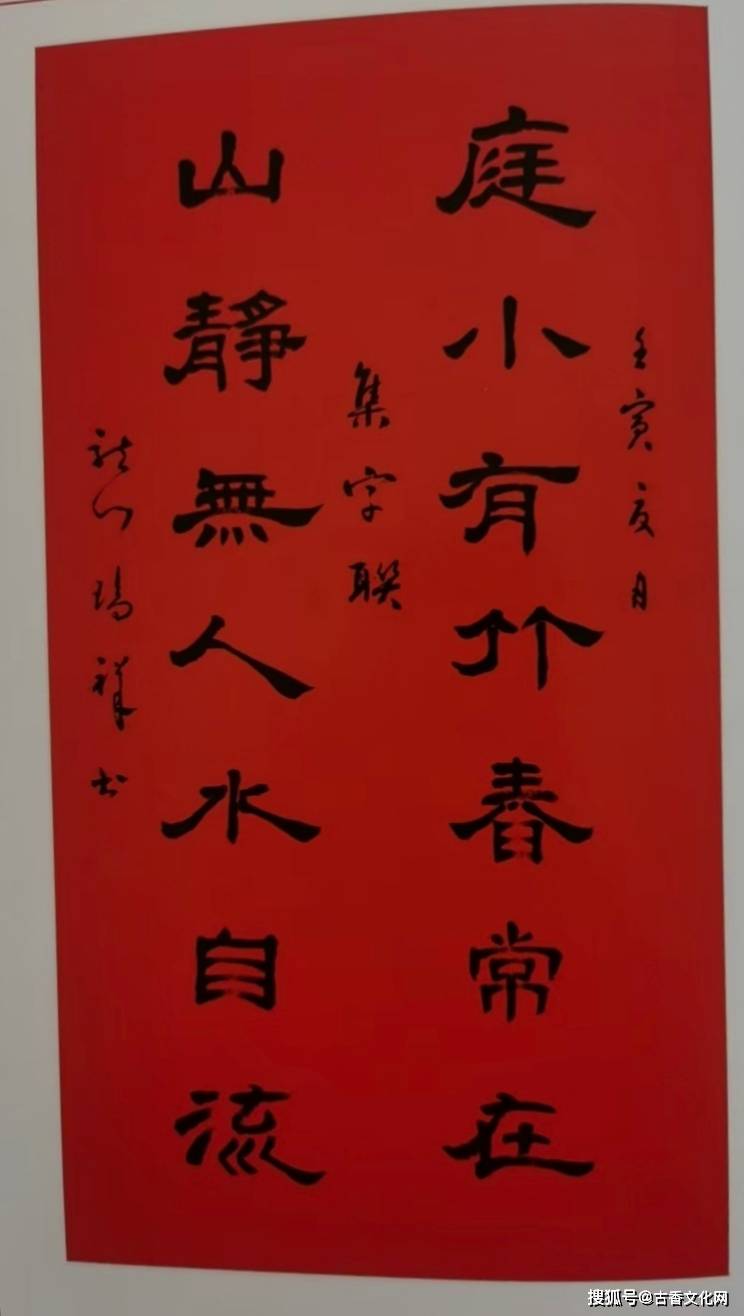 壬寅夏月
庭小有竹春常在
集字联
山靜無人水自流
龙门瑞祥书
搜狐号@古香文化网